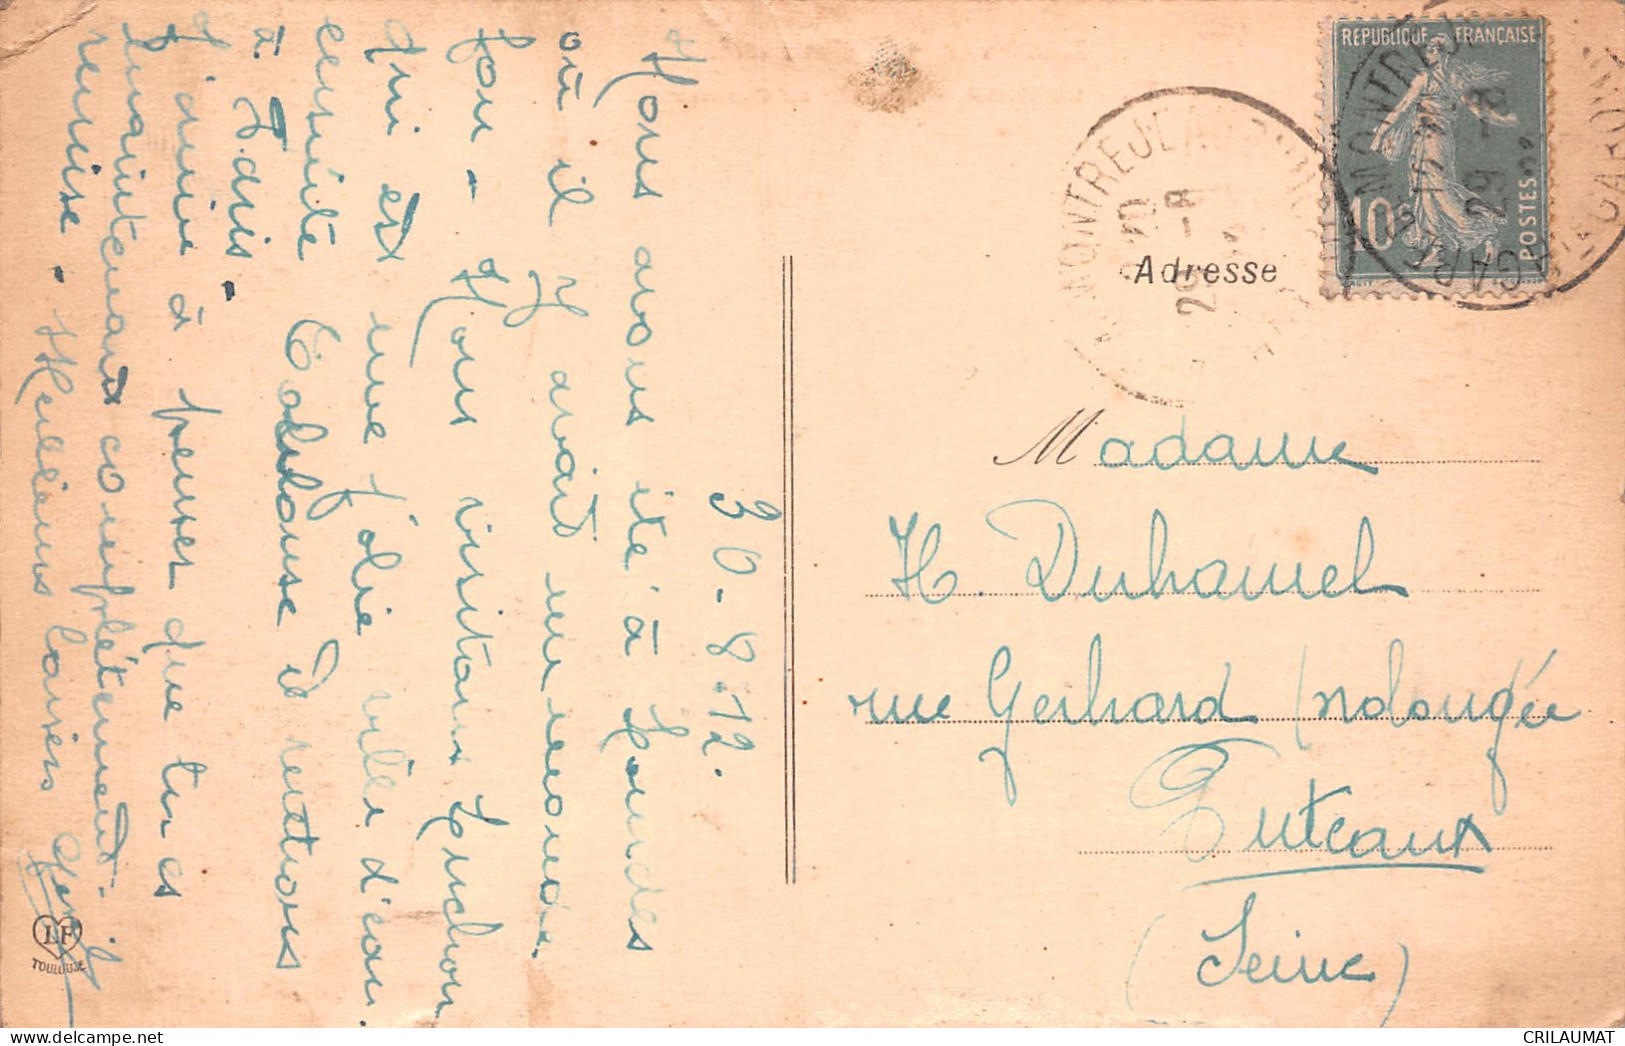 30-8-12.
Nous avons été à Lourdes
où il y avait un monde
fou - Nous visitons Luchon
qui est une jolie ville d'eau.
ensuite Toulouse et retours
à Paris -
J'aime à penser que tu es
maintenant complètement
remise - Meilleurs baisers
LF
TOULOUSE
REPUBLIQUE FRANÇAISE
10c
POSTES
MONTREJEAU
GARE
Adresse
Madame
H. Duhamel
rue Gerhard prolongée
Puteaux
(Seine)
CRILAUMAT